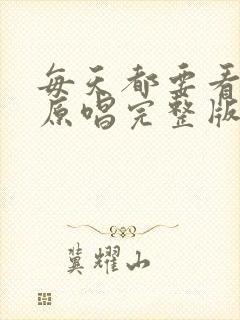 每天都要看
原唱完整版
冀耀山